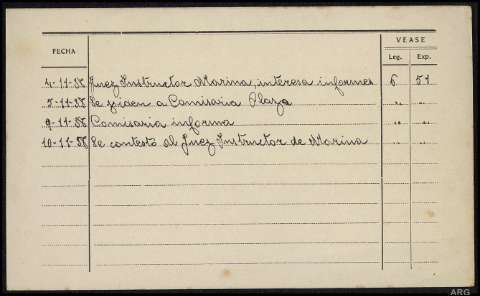 FECHA
VEASE
Leg. Exp.
4-11-38 Juez Instructor Marina, interesa informes 6 51
5-11-38 Se piden a Comisaria Plaza " "
9-11-38 Comisaria informa " "
10-11-38 Se contestó al Juez Instructor de Marina " "
ARG